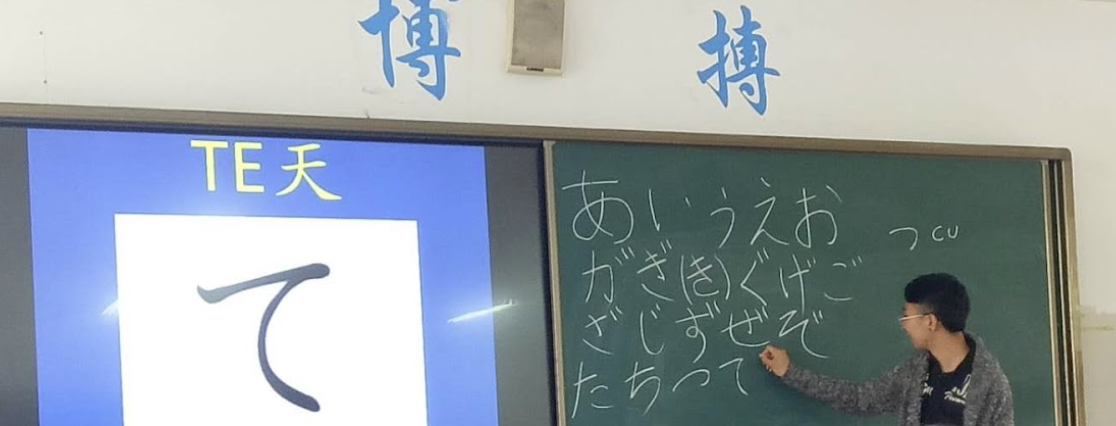 博 搏
TE天
て
あいうえお
がぎ(き)ぐげご
ざじずぜぞ
たちつて
つ cu